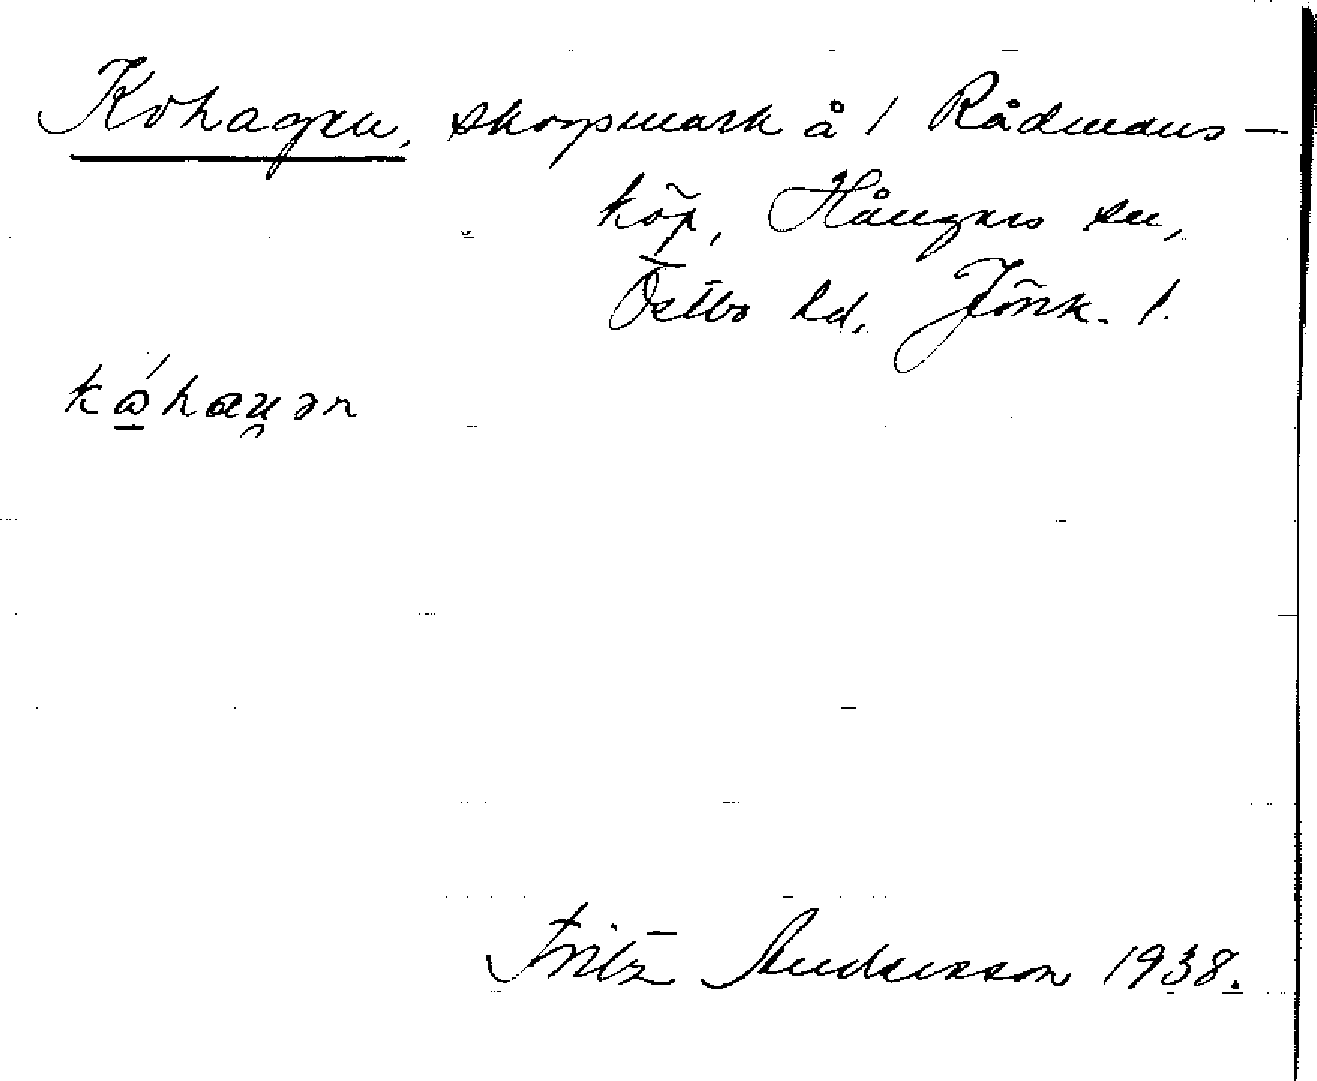 Kohagen, skogsmark å 1 Rådmans-
köp, Hångers sn,
Östbo hd, Jönk. l.
kώhaɣən
Fritz Andersson 1938.